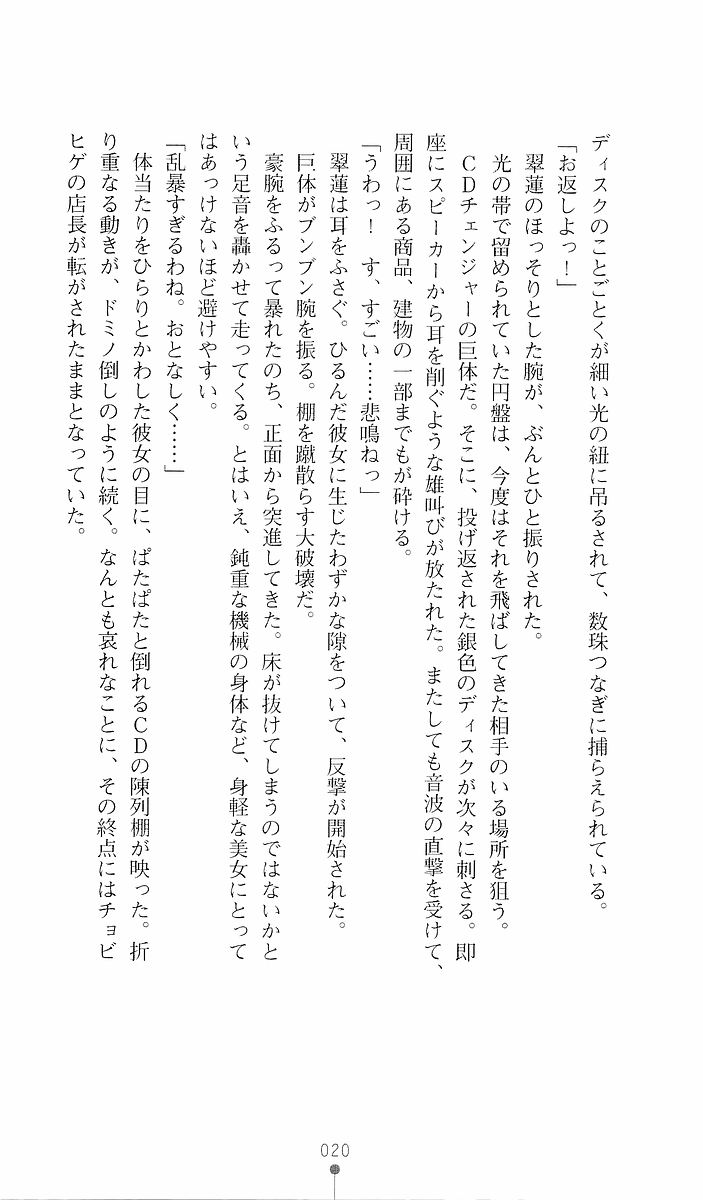 ディスクのことごとくが細い光の紐に吊るされて、数珠つなぎに捕らえられている。
「お返しよっ！」
　翠蓮のほっそりとした腕が、ぶんとひと振りされた。
　光の帯で留められていた円盤は、今度はそれを飛ばしてきた相手のいる場所を狙う。
　ＣＤチェンジャーの巨体だ。そこに、投げ返された銀色のディスクが次々に刺さる。即
座にスピーカーから耳を削ぐような雄叫びが放たれた。またしても音波の直撃を受けて、
周囲にある商品、建物の一部までもが砕ける。
「うわっ！　す、すごい……悲鳴ねっ」
　翠蓮は耳をふさぐ。ひるんだ彼女に生じたわずかな隙をついて、反撃が開始された。
　巨体がブンブン腕を振る。棚を蹴散らす大破壊だ。
　豪腕をふるって暴れたのち、正面から突進してきた。床が抜けてしまうのではないかと
いう足音を轟かせて走ってくる。とはいえ、鈍重な機械の身体など、身軽な美女にとって
はあっけないほど避けやすい。
「乱暴すぎるわね。おとなしく……」
　体当たりをひらりとかわした彼女の目に、ぱたぱたと倒れるＣＤの陳列棚が映った。折
り重なる動きが、ドミノ倒しのように続く。なんとも哀れなことに、その終点にはチョビ
ヒゲの店長が転がされたままとなっていた。
020